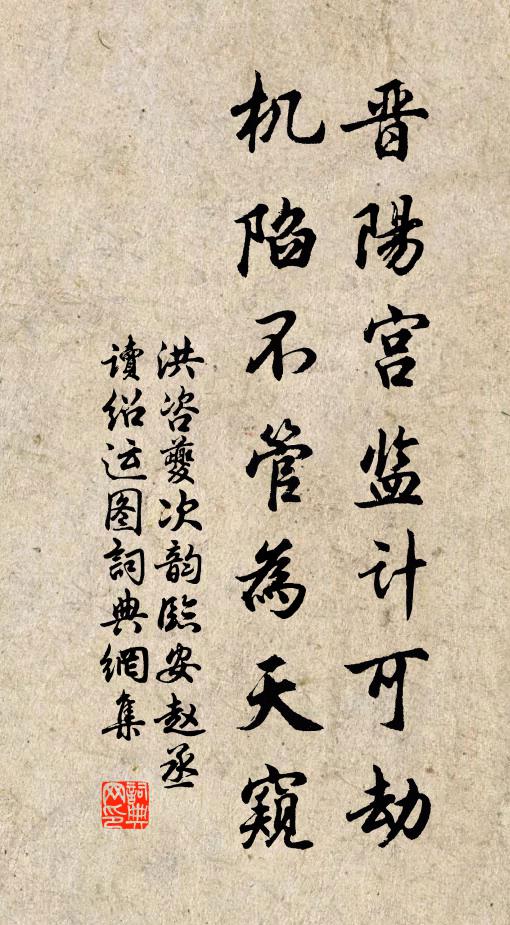 晋陽宫监计可劫
机陷不管為天窺
洪咨夔次韵臨安赵丞
讀绍运图詞典網集
詞典网印